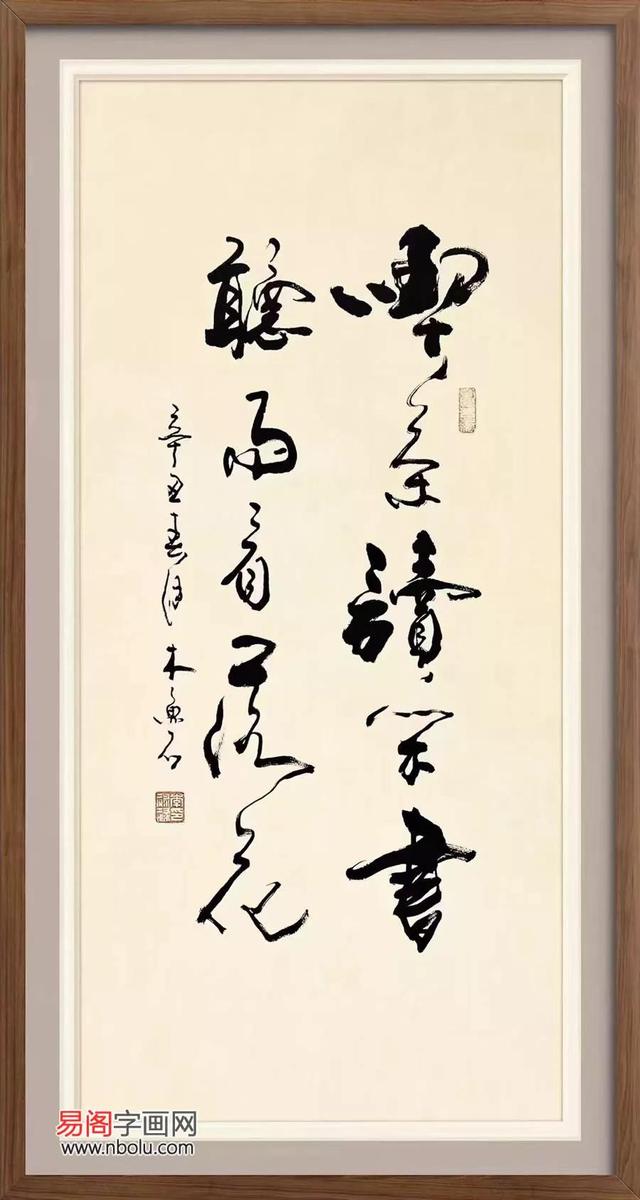 茶讀閑書
聽雨看落花
辛丑春 木魚石
易阁字画网
www.nbolu.com